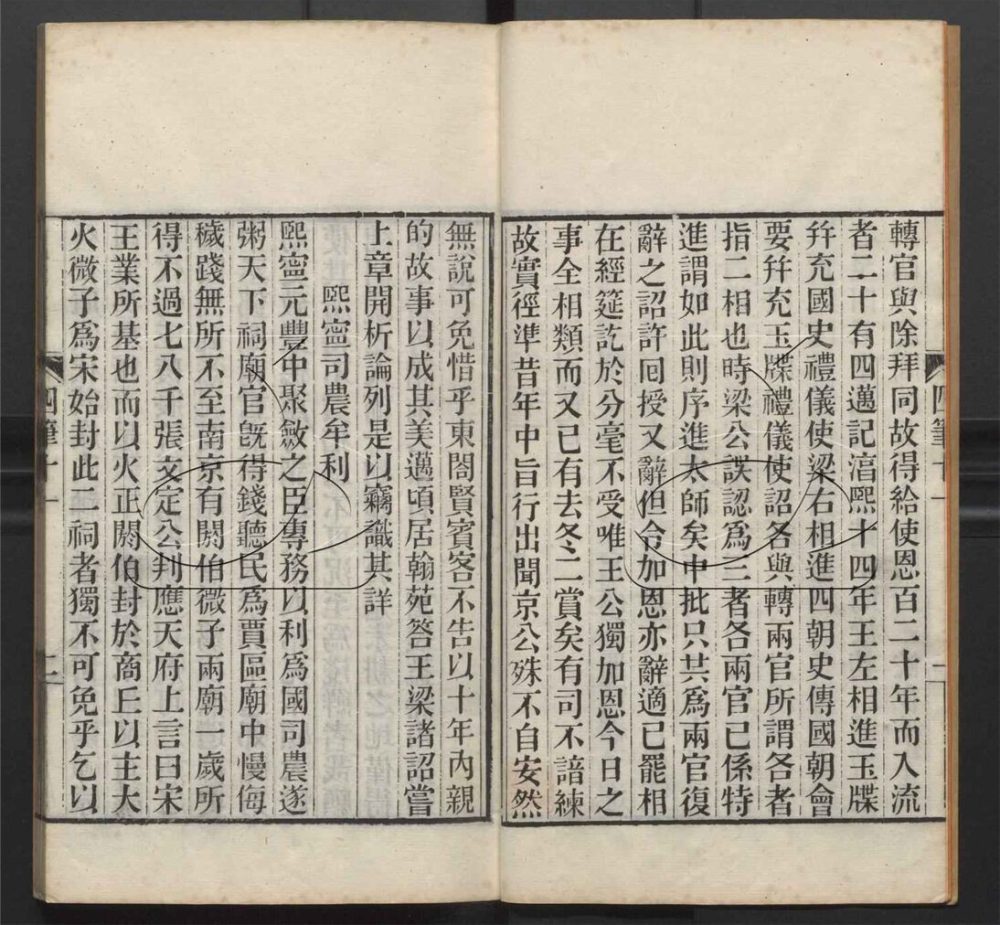 轉官與除拜同故得給使恩百二十年而入流
者二十有四邁記淳熙十四年王左相進玉牒
幷充國史禮儀使梁右相進四朝史傳國朝會
要幷充玉牒禮儀使詔各與轉兩官所謂各者
指二相也時梁公誤認爲三者各兩官已係特
進謂如此則序進太師矣中批只共爲兩官復
辭之詔許囘授又辭但令加恩亦辭適已罷相
在經筵訖於分毫不受唯王公獨加恩今日之
事全相類而又已有去冬二賞矣有司不諳練
故實徑準昔年中旨行出聞京公殊不自安然
四筆十一
一
無說可免惜乎東閤賢賓客不告以十年內親
的故事以成其美邁頃居翰苑答王梁諸詔嘗
上章開析論列是以竊識其詳
熙寧司農牟利
熙寧元豐中聚斂之臣專務以利爲國司農遂
粥天下祠廟官旣得錢聽民爲賈區廟中慢侮
穢踐無所不至南京有閼伯微子兩廟一歲所
得不過七八千張文定公判應天府上言曰宋
王業所基也而以火正閼伯封於商丘以主大
火微子爲宋始封此二祠者獨不可免乎乞以
四筆十一
二